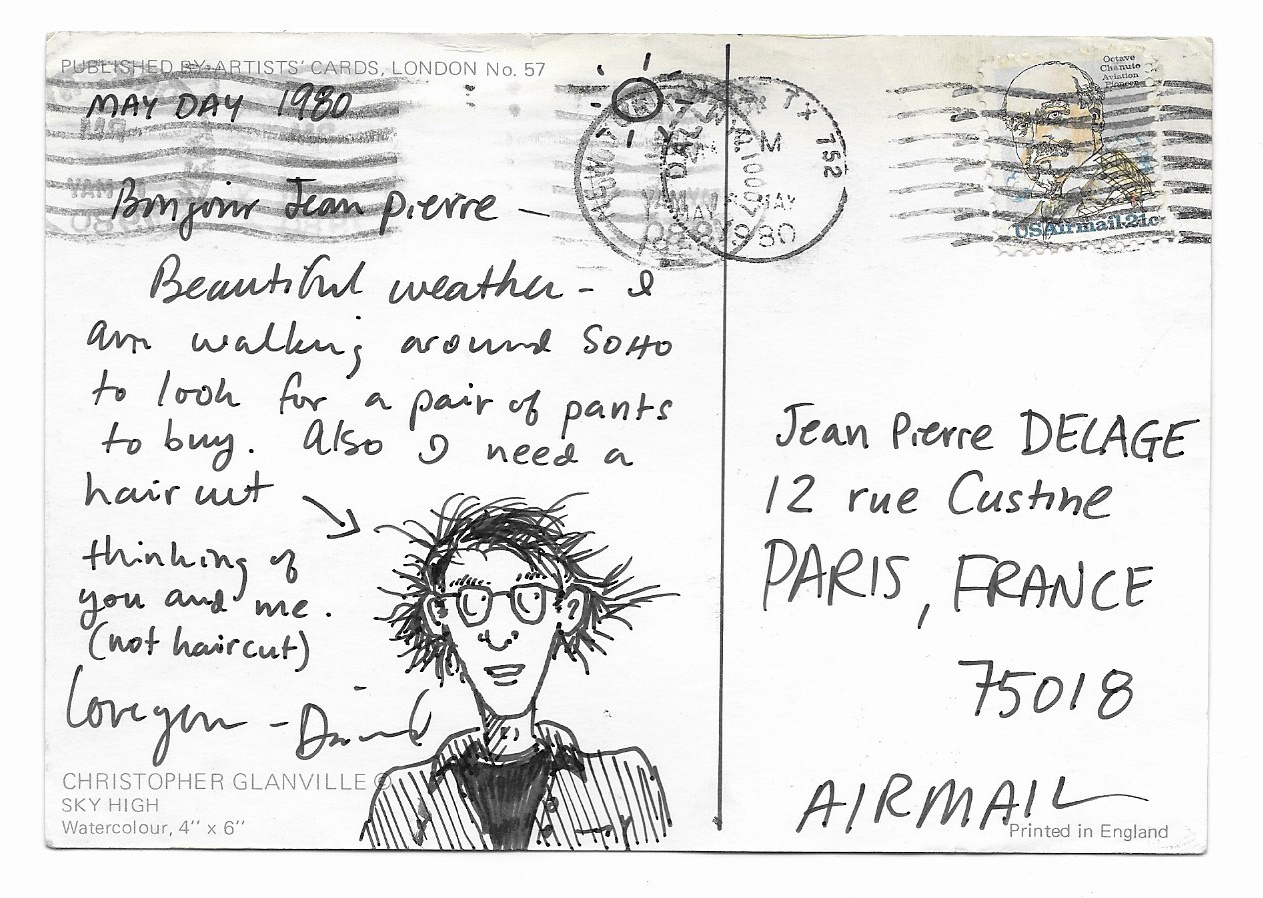 PUBLISHED BY ARTISTS' CARDS, LONDON No. 57
MAY DAY 1980
Bonjour Jean Pierre —
Beautiful weather - I
am walking around SOHO
to look for a pair of pants
to buy. Also I need a
haircut
thinking of
you and me.
(not haircut)
Love you - David
CHRISTOPHER GLANVILLE ©
SKY HIGH
Watercolour, 4" x 6"
TX 752
MAY
1980
Octave
Chanute
Aviation
Pioneer
USAirmail 21c
Jean Pierre DELAGE
12 rue Custine
PARIS, FRANCE
75018
AIRMAIL
Printed in England